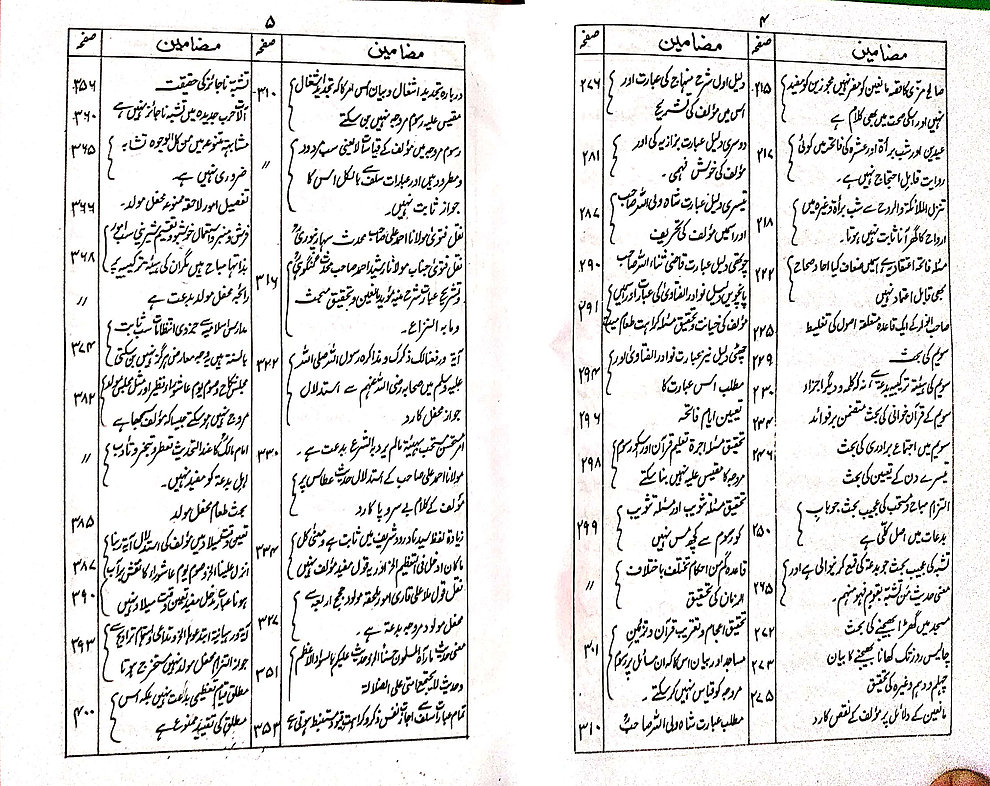 ۴
مضامین
صفحہ
صالح مری کا قصہ مانعین کو مضر نہیں مجوزین کو مفید
نہیں اور اسکی صحت میں بھی کلام ہے
۲۱۵
عیدین اور شب برأۃ اور عشرہ کی فاتحہ میں کوئی
روایت قابل احتجاج نہیں ہے۔
۲۱۷
تنزل الملائکۃ والروح سے شب برأۃ وغیرہ میں
ارواح کا گھر آنا ثابت نہیں ہوتا۔
۲۱۸
مسئلہ فاتحہ اعتقادیہ ہے اسمیں ضعاف کیا احاد صحاح
بھی قابل اعتماد نہیں
۲۲۲
صاحب انوار کے ایک قاعدہ متعلقہ اصول کی تغلیط
۲۲۵
سویم کی بحث
۲۲۹
سویم کی ہیئۃ ترکیبیہ بدعت ہے، نہ کہ کلمہ و دیگر اجزاء
۲۳۰
سویم کے قرآن خوانی کی بحث متضمن بر فوائد
۲۳۴
سویم میں اجتماع برادری کی بحث
۲۴۶
تیسرے دن کے تعین کی بحث
التزام مباح و مستحب کی عجیب بحث جو باب
بدعات میں اصل کلی ہے
۲۵۰
تشبہ کی عجیب بحث جو بدعۃ کی قلع کرنیوالی ہے اور
معنی حدیث من تشبہ بقوم فہو منہم۔
۲۶۵
مسجد میں گھڑا بھیجنے کی بحث
۲۷۲
چالیس روز تک کھانا بھیجنے کا بیان
۲۷۳
چہلم و دہم وغیرہ کی تحقیق
۲۷۵
مانعین کے دلائل پر مؤلف کے نقض کا رد
مضامین
صفحہ
دلیل اول شرح منہاج کی عبارت اور
اس میں مؤلف کی تشریح
۲۷۶
دوسری دلیل عبارت بزازیہ کی اور
مؤلف کی خوش فہمی۔
۲۸۱
تیسری دلیل عبارت شاہ ولی اللہ صاحب
اور اسمیں مؤلف کی تحریف
۲۸۷
چوتھی دلیل عبارت قاضی ثناء اللہ صاحب
۲۹۰
پانچویں دلیل نوادر الفتاویٰ کی عبارت اور اسمیں
مؤلف کی خیانت و تحقیق مسئلہ کراہت طعام میت
۲۹۱
چھٹی دلیل نیز عبارت نوادر الفتاویٰ اور
مطلب اس عبارت کا
۲۹۴
تعیین ایام فاتحہ
۲۹۶
تحقیق مسئلہ اجرۃ تعلیم قرآن اور اسکو رسوم
مروجہ کا مقیس علیہ نہیں بنا سکتے
۲۹۸
تحقیق مسئلہ تثویب اور مسئلہ تثویب
کو رسوم سے کچھ مس نہیں
۲۹۹
قاعدہ کم من احکام تختلف باختلاف
الزمان کی تحقیق
〃
تحقیق اعجام و تعریب قرآن و تزئین
مساجد اور بیان اس کا کہ ان مسائل پر رسوم
مروجہ کو قیاس نہیں کر سکتے۔
۳۰۱
مطلب عبارت شاہ ولی اللہ صاحبؒ
۳۱۰
۵
مضامین
صفحہ
دربارہ تجدید اشغال و بیان اس امر کا کہ تجدید اشغال
مقیس علیہ رسوم مروجہ نہیں بن سکتے
۳۱۰
رسوم مروجہ میں مؤلف کے قیاسات لایعنی سب مردود
و مطرود ہیں اور عبارات سلف سے بالکل اس کا
جواز ثابت نہیں۔
〃
نقل فتویٰ مولانا احمد علی صاحب محدث سہارنپوریؒ و
نقل فتویٰ جناب مولانا رشید احمد صاحب محدث گنگوہیؒ
و تشریح عبارت شرح منیہ مؤید مانعین و تحقیق مبحث
و ما بہ النزاع۔
۳۱۶
آیۃ و رفعنا لک ذکرک و مذاکرہ رسول اللہ صلی اللہ
علیہ وسلم میں صحابہ رضی اللہ عنہم سے استدلال
جواز محفل کا رد
۳۲۲
امر مستحسن مستحب بہیئۃ مالم یرد بہ الشرع بدعت ہے۔
۳۳۰
مولانا احمد علی صاحب کے استدلال حدیث عطاس پر
مؤلف کے کلام بے سروپا کا رد
زیادۃ لفظ سیدنا درود شریف میں ثابت ہے و معنی کل
ما کان ادخل فی التعظیم الخ اور یہ قول مفید مؤلف نہیں
۳۳۴
نقل قول ملا علی قاری اور ملحقہ مولود بجمیع اربعہ سے
محفل مولود مروجہ بدعۃ ہے۔
۳۴۷
معنی حدیث ما رآہ المسلمون حسنا الخ وحدیث علیکم بالسواد الاعظم
وحدیث لا یجتمع امتی علی الضلالۃ
۳۵۱
تمام عبارات سلف سے اجازت نفس ذکر و کراہت قیود مستنبط ہوتی ہے
۳۵۳
مضامین
صفحہ
تشبہ ناجائز کی حقیقت
۳۵۶
آلات حرب جدیدہ میں تشبہ ناجائز نہیں ہے
۳۶۰
مشابہۃ ممنوعہ میں من کل الوجوہ تشابہ
ضروری نہیں ہے۔
۳۶۵
تفصیل امور لاحقہ ممنوعہ محفل مولد۔
۳۶۶
فرش و منبر و استعمال خوشبو و تقسیم شیرینی سب امور
بذاتہا مباح ہیں مگر ان کی ہیئۃ ترکیبیہ کیوجہ
۳۶۸
رائجہ محفل مولد بدعت ہے
〃
مدارس اسلامیہ سے جزوی انتظامات سب ثابت
بالسنۃ ہیں یہ وجہ معارض ہرگز نہیں بن سکتی
۳۷۴
مجلس نکاح و صوم یوم عاشوراء نظیر اور مثل مجلس مولد
مروج نہیں ہو سکتے جیسا کہ مؤلف سمجھا ہے
۳۸۲
امام مالکؒ کا عند التحدیث تعطر و تبخر و تأدب
اہل بدعۃ کو مفید نہیں۔
〃
بحث طعام محفل مولد
۳۸۵
تعین وقت میلاد میں مؤلف کی استدلال آیۃ ربنا
انزل علینا الخ و صوم یوم عاشوراء کا نقش بر آب
۳۸۷
ہونا عبارت مدخل مفید تعین وقت میلاد نہیں
۳۹۰
آیۃ و رہبانیۃ ابتدعوھا الخ و تداعی و اہتمام تراویح سے
جواز التزام محفل مولد نہیں مستخرج ہوتا
۳۹۳
مطلق قیام تعظیمی بدعت نہیں بلکہ اس
مطلق کی تقیید ممنوع ہے
۴۰۰